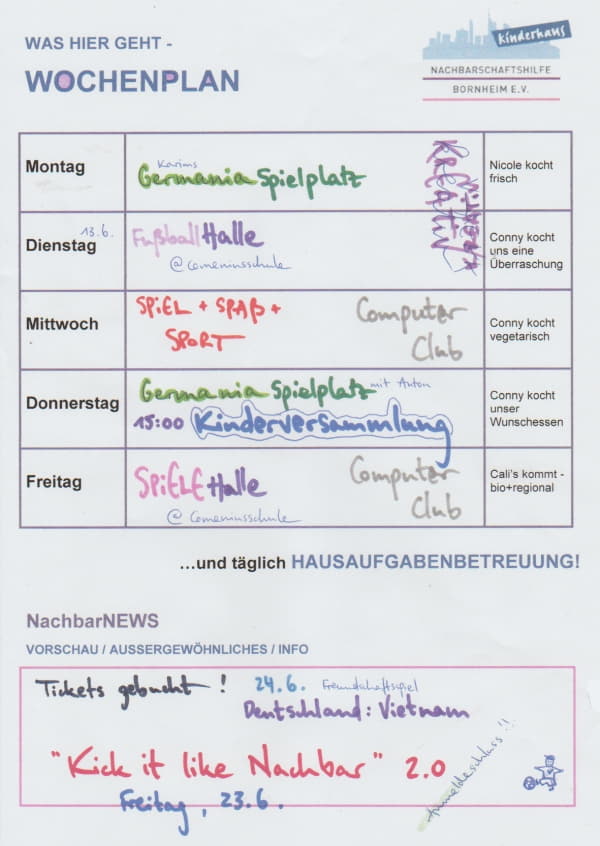 WAS HIER GEHT -
WOCHENPLAN
Kinderhaus
NACHBARSCHAFTSHILFE
BORNHEIM E.V.
Montag
Karims
Germania Spielplatz
KREATIV
Nicole kocht
frisch
Dienstag
13.6.
Fußball Halle
@comeniusschule
Conny kocht
uns eine
Überraschung
Mittwoch
SPiEL + SPAß +
SPORT
Computer
Club
Conny kocht
vegetarisch
Donnerstag
Germania Spielplatz mit Anton
15:00 Kinderversammlung
Conny kocht
unser
Wunschessen
Freitag
SPiELE Halle
@ Comeniusschule
Computer
Club
Cali's kommt -
bio+regional
...und täglich HAUSAUFGABENBETREUUNG!
NachbarNEWS
VORSCHAU / AUSSERGEWÖHNLICHES / INFO
Tickets gebucht ! 24.6. Freundschaftsspiel
Deutschland : Vietnam
"Kick it like Nachbar" 2.0
Freitag, 23.6.
Anmeldeschluss!!